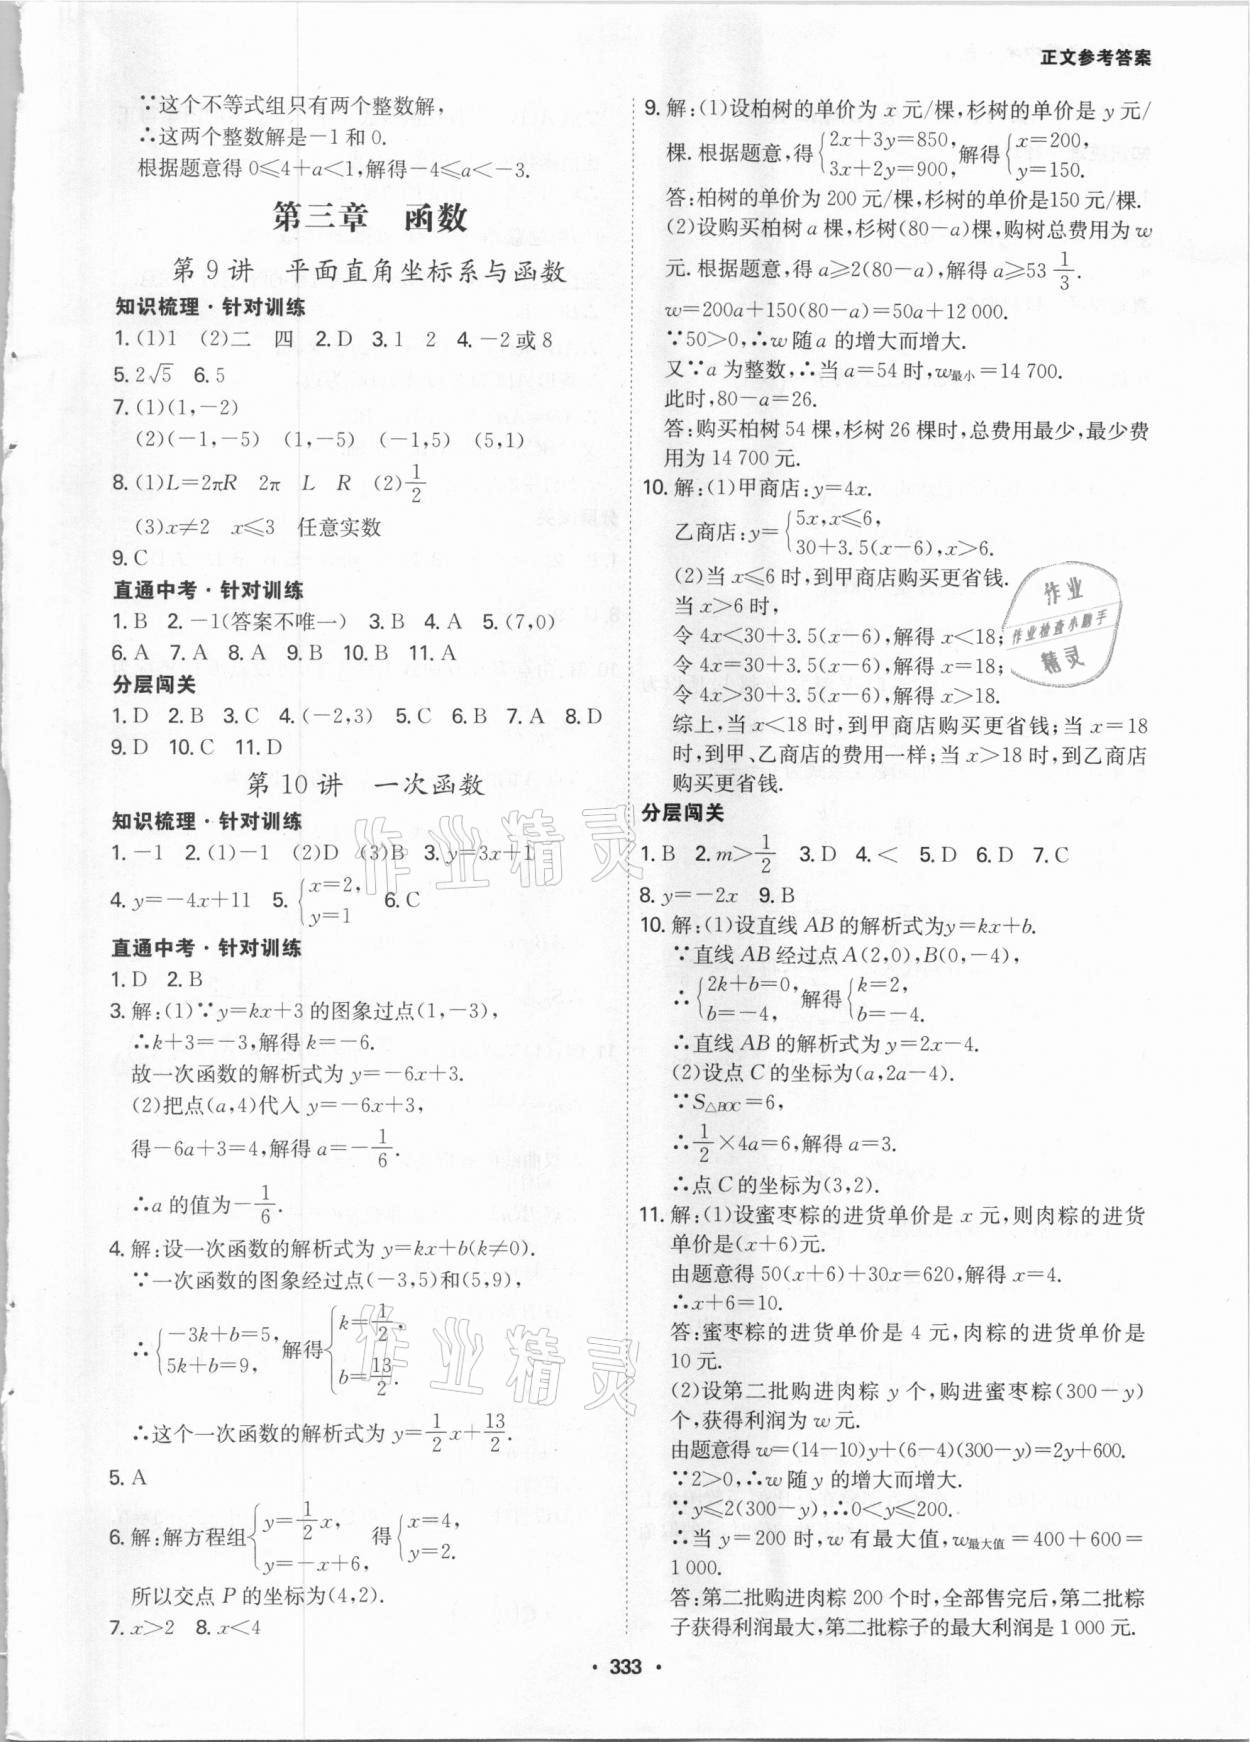 正文参考答案
∵这个不等式组只有两个整数解,
∴这两个整数解是-1和0.
根据题意得 0⩽4+a<1,解得-4⩽a<-3.
第三章 函数
第9讲 平面直角坐标系与函数
知识梳理·针对训练
1.(1)1 (2)二 四 2.D 3.1 2 4.-2或8
5.2√5 6.5
7.(1)(1,-2)
(2)(-1,-5) (1,-5) (-1,5) (5,1)
8.(1)L=2πR 2π L R (2)1/2
(3)x≠2 x⩽3 任意实数
9.C
直通中考·针对训练
1.B 2.-1(答案不唯一) 3.B 4.A 5.(7,0)
6.A 7.A 8.A 9.B 10.B 11.A
分层闯关
1.D 2.B 3.C 4.(-2,3) 5.C 6.B 7.A 8.D
9.D 10.C 11.D
第10讲 一次函数
知识梳理·针对训练
1.-1 2.(1)-1 (2)D (3)B 3.y=3x+1
4.y=-4x+11 5.{x=2, y=1 6.C
直通中考·针对训练
1.D 2.B
3.解:(1)∵y=kx+3的图象过点(1,-3),
∴k+3=-3,解得k=-6.
故一次函数的解析式为 y=-6x+3.
(2)把点(a,4)代入 y=-6x+3,
得-6a+3=4,解得 a=-1/6.
∴a的值为-1/6.
4.解:设一次函数的解析式为 y=kx+b(k≠0).
∵一次函数的图象经过点(-3,5)和(5,9),
∴{-3k+b=5, 5k+b=9, 解得{k=1/2, b=13/2.
∴这个一次函数的解析式为 y=1/2x+13/2.
5.A
6.解:解方程组{y=1/2x, y=-x+6, 得{x=4, y=2.
所以交点 P 的坐标为(4,2).
7.x>2 8.x<4
9.解:(1)设柏树的单价为 x 元/棵,杉树的单价是 y 元/
棵.根据题意,得{2x+3y=850, 3x+2y=900, 解得{x=200, y=150.
答:柏树的单价为 200 元/棵,杉树的单价是150元/棵.
(2)设购买柏树 a 棵,杉树(80-a)棵,购树总费用为 w
元.根据题意,得 a⩾2(80-a),解得 a⩾53 1/3.
w=200a+150(80-a)=50a+12 000.
∵50>0,∴w 随 a 的增大而增大.
又∵a 为整数,∴当 a=54 时,w最小=14 700.
此时,80-a=26.
答:购买柏树 54 棵,杉树 26 棵时,总费用最少,最少费
用为 14 700 元.
10.解:(1)甲商店:y=4x.
乙商店:y={5x,x⩽6, 30+3.5(x-6),x>6.
(2)当 x⩽6 时,到甲商店购买更省钱.
当 x>6 时,
令 4x<30+3.5(x-6),解得 x<18;
令 4x=30+3.5(x-6),解得 x=18;
令 4x>30+3.5(x-6),解得 x>18.
综上,当 x<18 时,到甲商店购买更省钱;当 x=18
时,到甲、乙商店的费用一样;当 x>18 时,到乙商店
购买更省钱.
分层闯关
1.B 2.m>1/2 3.D 4.< 5.D 6.D 7.C
8.y=-2x 9.B
10.解:(1)设直线 AB 的解析式为y=kx+b.
∵直线 AB 经过点 A(2,0),B(0,-4),
∴{2k+b=0, b=-4, 解得{k=2, b=-4.
∴直线 AB 的解析式为 y=2x-4.
(2)设点 C 的坐标为(a,2a-4).
∵S△BOC=6,
∴1/2×4a=6,解得 a=3.
∴点 C 的坐标为(3,2).
11.解:(1)设蜜枣粽的进货单价是 x 元,则肉粽的进货
单价是(x+6)元.
由题意得 50(x+6)+30x=620,解得 x=4.
∴x+6=10.
答:蜜枣粽的进货单价是 4 元,肉粽的进货单价是
10 元.
(2)设第二批购进肉粽 y 个,购进蜜枣粽(300-y)
个,获得利润为 w 元.
由题意得w=(14-10)y+(6-4)(300-y)=2y+600.
∵2>0,∴w 随 y 的增大而增大.
∵y⩽2(300-y),∴0<y⩽200.
∴当 y=200 时,w 有最大值,w最大值=400+600=
1 000.
答:第二批购进肉粽 200 个时,全部售完后,第二批粽
子获得利润最大,第二批粽子的最大利润是 1 000 元.
作业
作业检查小助手
精灵
作业精灵
作业精灵
· 333 ·